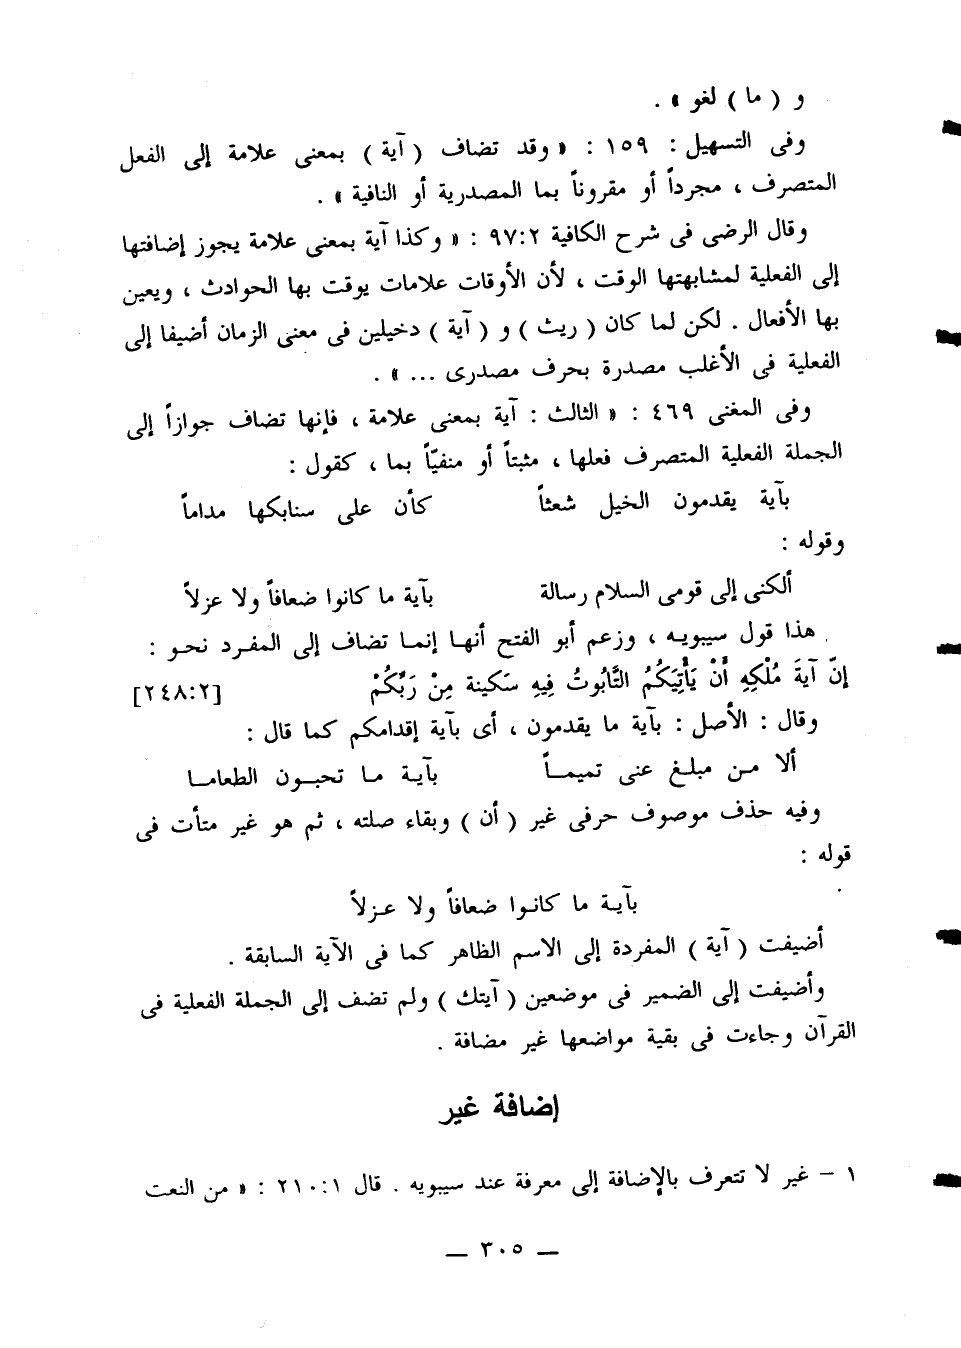 و ( ما ) لغو » .
وفى التسهيل : ١٥٩ : « وقد تضاف ( آية ) بمعنى علامة إلى الفعل
المتصرف ، مجرداً أو مقروناً بما المصدرية أو النافية » .
وقال الرضى فى شرح الكافية ٩٧:٢ : « وكذا آية بمعنى علامة يجوز إضافتها
إلى الفعلية لمشابهتها الوقت ، لأن الأوقات علامات يوقت بها الحوادث ، ويعين
بها الأفعال . لكن لما كان ( ريث ) و ( آية ) دخيلين فى معنى الزمان أضيفا إلى
الفعلية فى الأغلب مصدرة بحرف مصدرى ... » .
وفى المغنى ٤٦٩ : « الثالث : آية بمعنى علامة ، فإنها تضاف جوازاً إلى
الجملة الفعلية المتصرف فعلها ، مثبتاً أو منفيّاً بما ، كقول :
بآية يقدمون الخيل شعثاً كأن على سنابكها مداماً
وقوله :
ألكنى إلى قومى السلام رسالة بآية ما كانوا ضعافاً ولا عزلاً
هذا قول سيبويه ، وزعم أبو الفتح أنها إنما تضاف إلى المفرد نحو :
إنّ آيةَ مُلْكِهِ أَنْ يَأْتِيَكُمُ التَّابُوتُ فِيهِ سَكينة مِنْ رَبِّكُمْ [٢٤٨:٢]
وقال : الأصل : بآية ما يقدمون ، أى بآية إقدامكم كما قال :
ألا من مبلغ عنى تميماً بآية ما تحبون الطعاما
وفيه حذف موصوف حرفى غير ( أن ) وبقاء صلته ، ثم هو غير متأت فى
قوله :
بآية ما كانوا ضعافاً ولا عزلاً
أضيفت ( آية ) المفردة إلى الاسم الظاهر كما فى الآية السابقة .
وأضيفت إلى الضمير فى موضعين ( آيتك ) ولم تضف إلى الجملة الفعلية فى
القرآن وجاءت فى بقية مواضعها غير مضافة .
إضافة غير
١ – غير لا تتعرف بالإضافة إلى معرفة عند سيبويه . قال ٢١٠:١ : « من النعت
— ٣٠٥ —